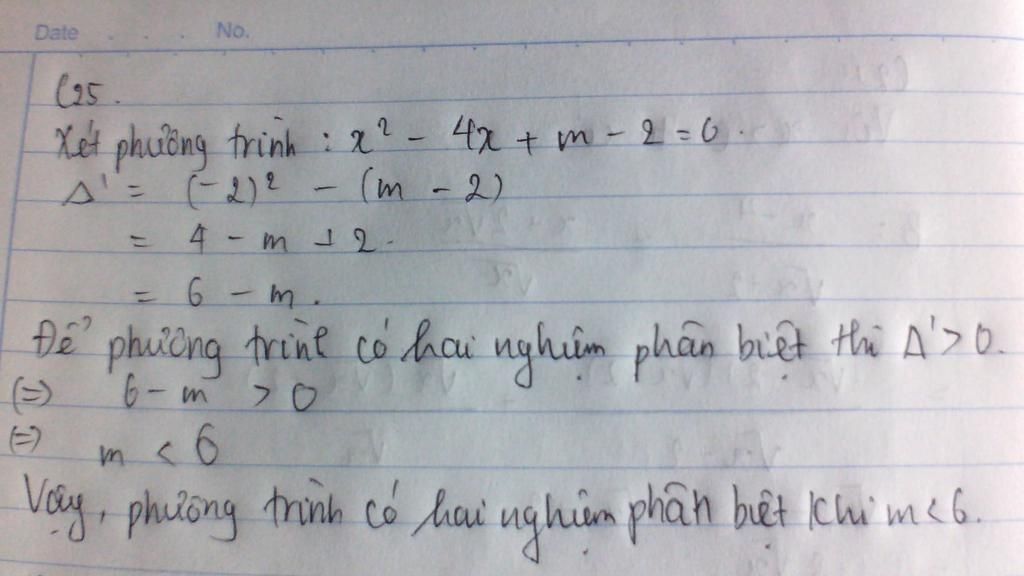 Date . . . No.
C25.
Xét phương trình : x² - 4x + m - 2 = 0.
Δ' = (-2)² - (m - 2)
= 4 - m + 2.
= 6 - m.
Để phương trình có hai nghiệm phân biệt thì Δ' > 0.
(=) 6 - m > 0
(=) m < 6
Vậy, phương trình có hai nghiệm phân biệt khi m < 6.